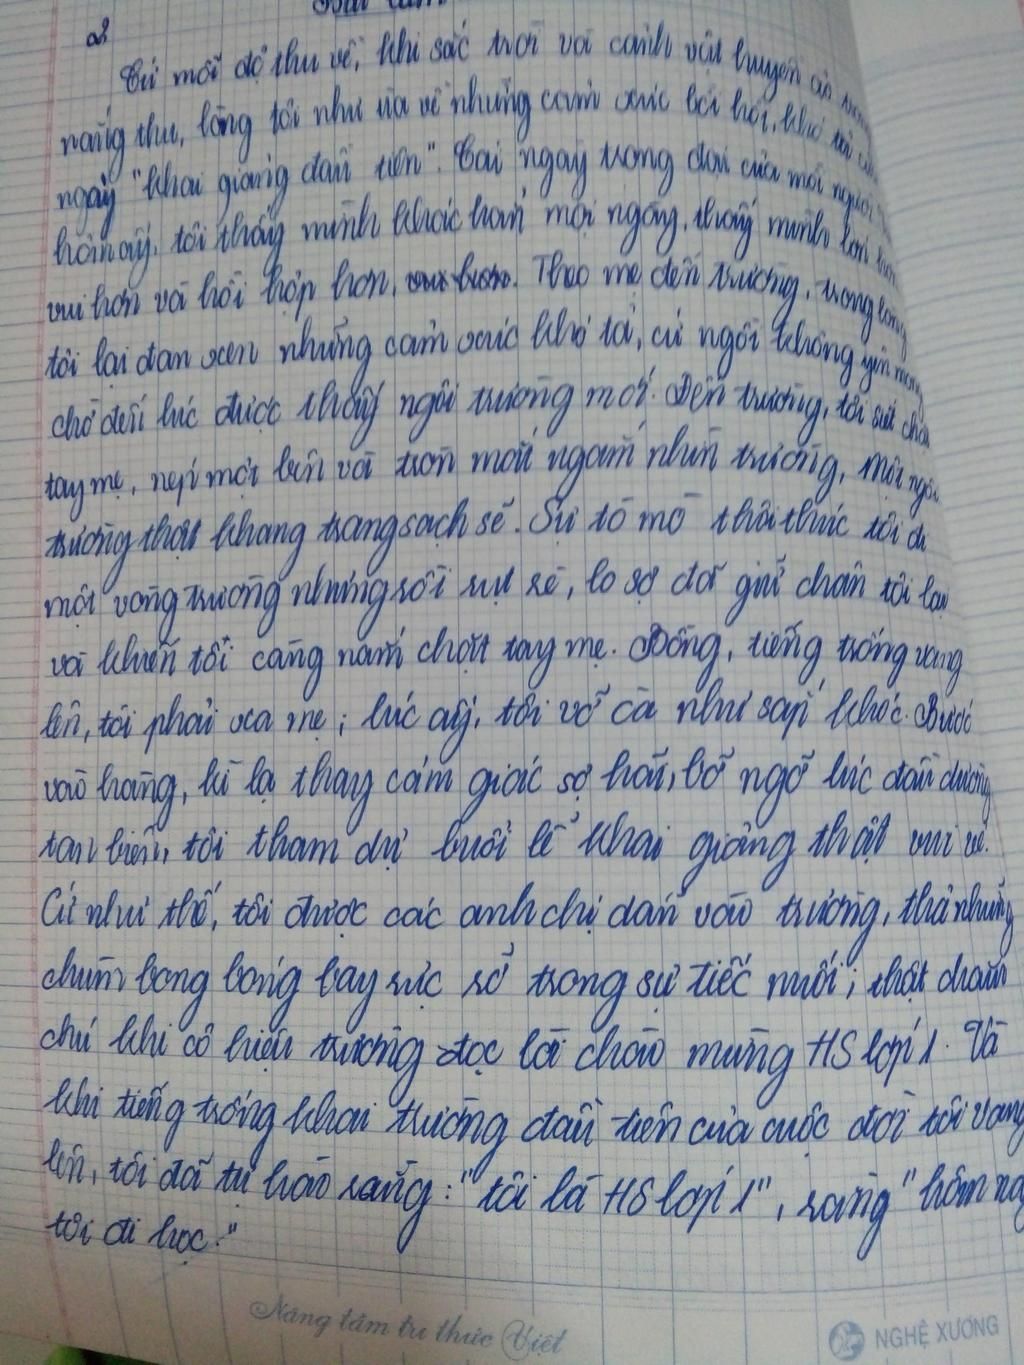 Bài làm
2
Cứ mỗi độ thu về, khi sắc trời và cảnh vật huyền ảo
nắng thu, lòng tôi như ùa về những cảm xúc bồi hồi, khó tả
ngày "khai giảng đầu tiên". Cái ngày trọng đại của mỗi người
hôm ấy, tôi thấy mình khác hẳn mọi ngày, thấy mình lớn hơn
vui hơn và hồi hộp hơn. Theo mẹ đến trường, trong lòng
tôi lại đan xen những cảm xúc khó tả, cứ ngồi không yên mong
chờ đến lúc được thấy ngôi trường mới. Đến trường, tôi siết chặt
tay mẹ, nép một bên và tròn mắt ngắm nhìn trường, một ngôi
trường thật khang trang sạch sẽ. Sự tò mò thôi thúc tôi đi
một vòng trường nhưng rồi rụt rè, lo sợ đã giữ chân tôi lại
và khiến tôi càng nắm chặt tay mẹ. Bỗng, tiếng trống vang
lên, tôi phải xa mẹ; lúc ấy, tôi vỡ oà như sắp khóc. Bước
vào hàng, kì lạ thay cảm giác sợ hãi, bỡ ngỡ lúc đầu dường
tan biến, tôi tham dự buổi lễ khai giảng thật vui vẻ.
Cứ như thế, tôi được các anh chị dẫn vào trường, thả những
chùm bong bóng bay rực rỡ trong sự tiếc nuối; thật chăm
chú khi cô hiệu trưởng đọc lời chào mừng HS lớp 1. Và
khi tiếng trống khai trường đầu tiên của cuộc đời tôi vang
lên, tôi đã tự hào rằng: "tôi là HS lớp 1", rằng "hôm nay
tôi đi học."
Nâng tầm tri thức Việt
NGHỆ XƯƠNG